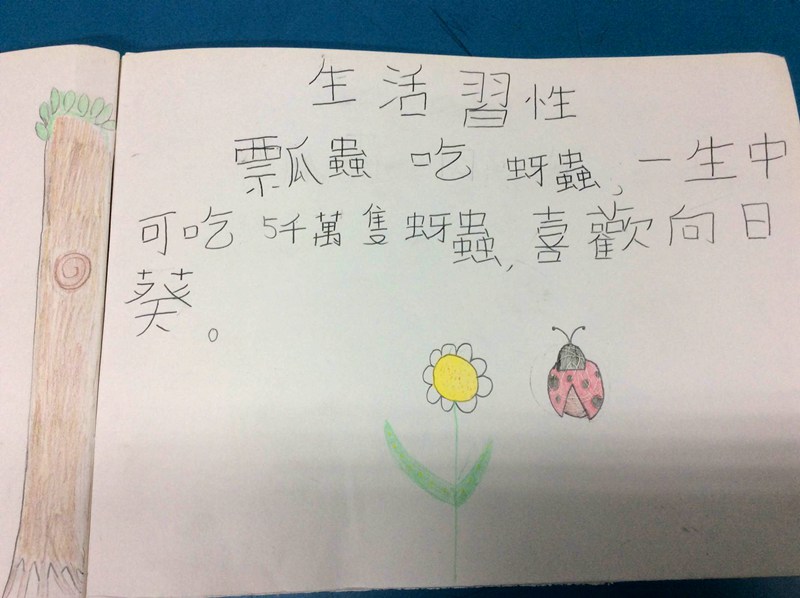 生活習性
瓢瓜蟲吃蚜蟲,一生中
可吃5千萬隻蚜蟲,喜歡向日
葵。